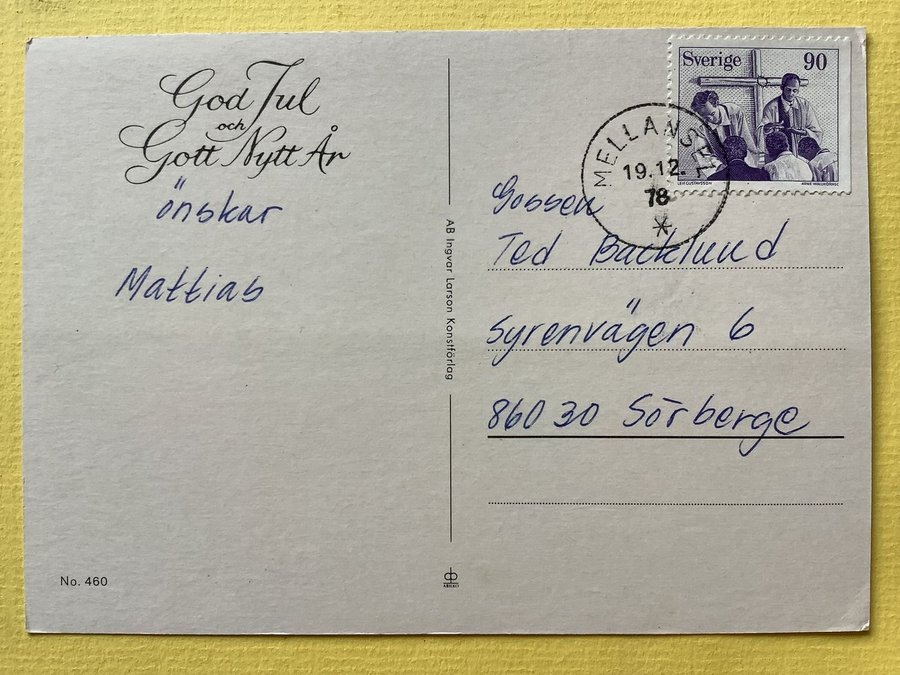 God Jul
och
Gott Nytt År
önskar
Mattias
No. 460
AB Ingvar Larson Konstförlag
Sverige 90
LEIF GUSTAVSSON
MELLANSEL
19.12.
78
Gossen
Ted Backlund
Syrenvägen 6
860 30 Sörberge